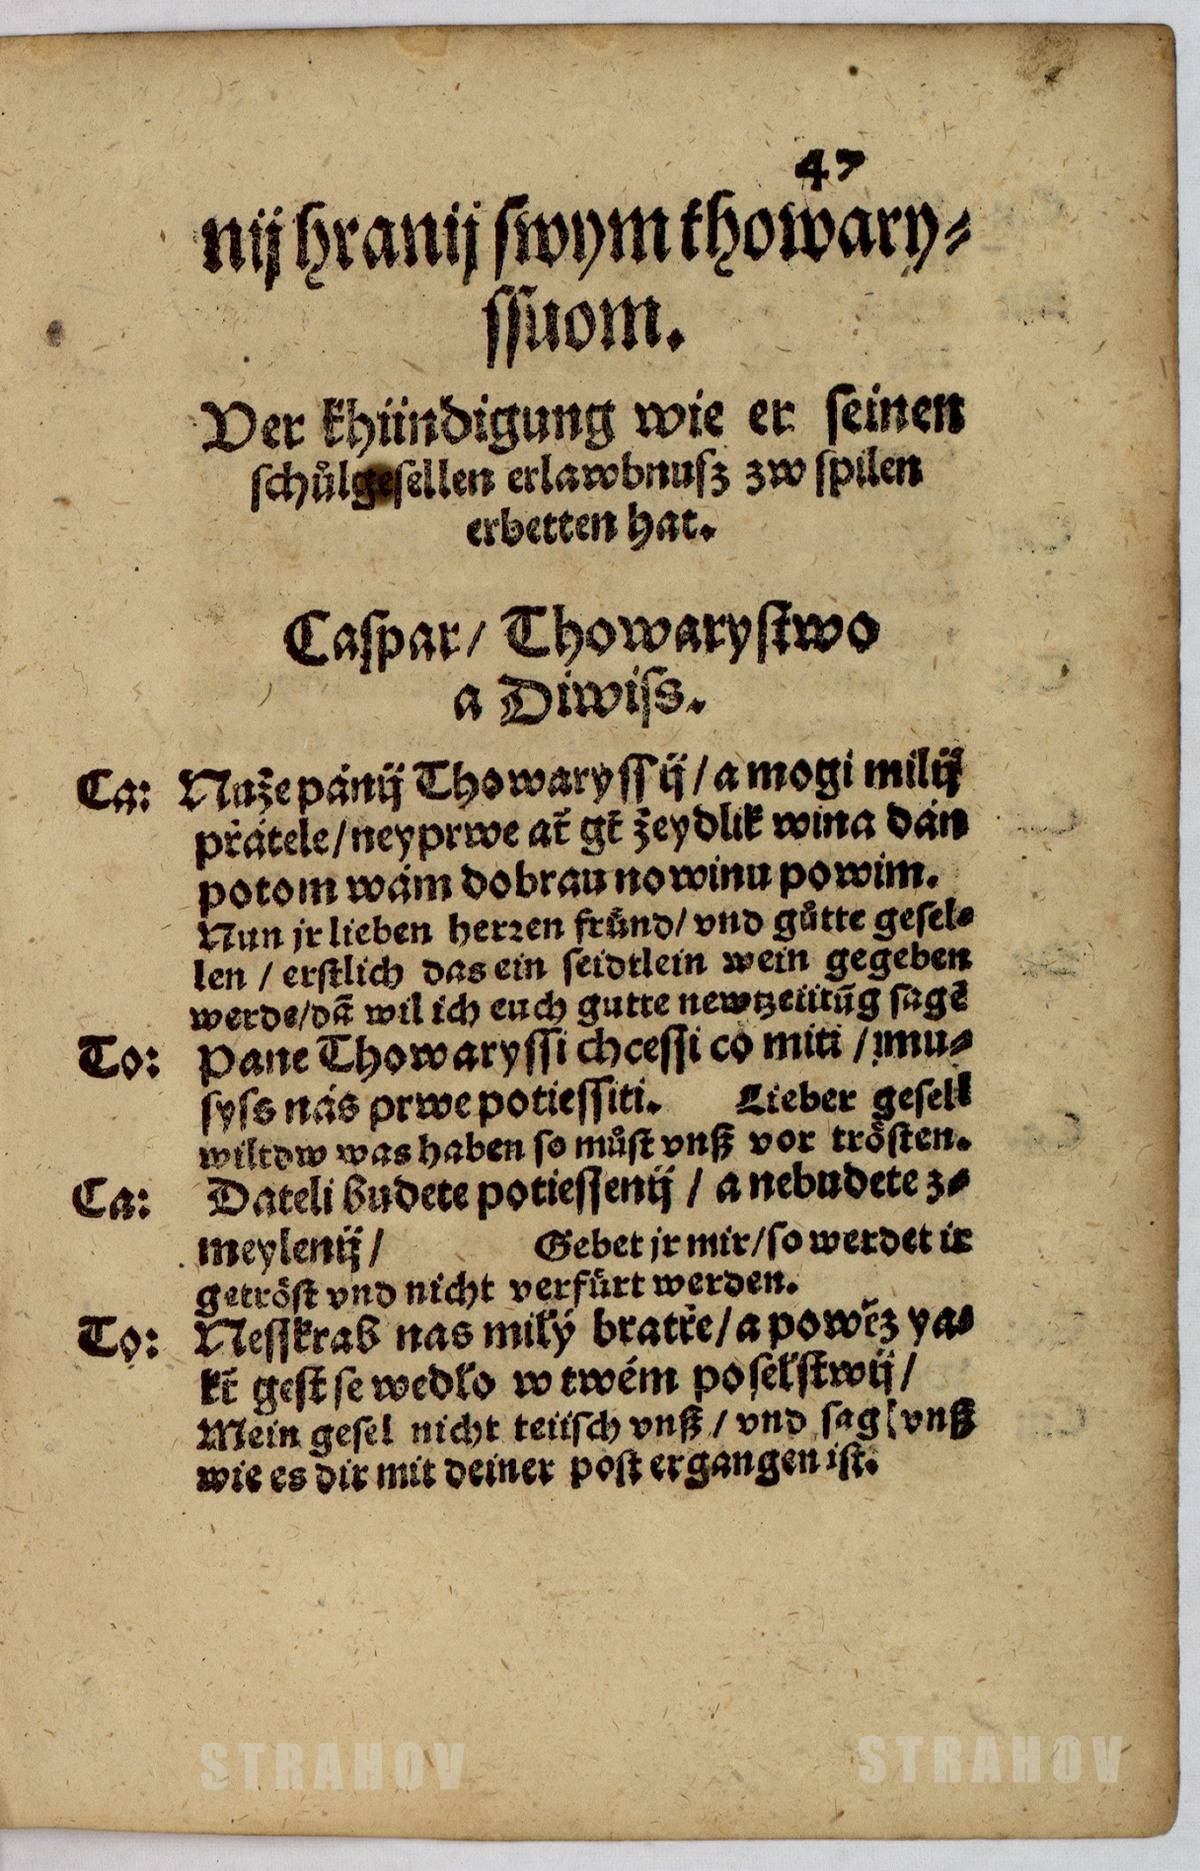 47
nij hranij swym thowary⸗
ssuom.
Ver khündigung wie er seinen
schůlgesellen erlawbnusz zw spilen
erbetten hat.
Caspar/ Thowarystwo
a Diwiss.
Ca: Nuže pánij Thowaryssij/ a mogi milij
přátele/ neyprwe at̃ gt̃ žeydlik wina dán
potom wám dobrau nowinu powim.
Nun jr lieben herren frůnd/ vnd gůtte gesel⸗
len / erstlich das ein seidtlein wein gegeben
werde/dã wil ich euch gutte newtzeiitũg sagẽ
To: Pane Thowaryssi chcessi co miti / imu⸗
syss nás prwe potiessiti. Lieber gesell
wiltdw was haben so můst vnß vor trȯsten.
Ca: Dateli budete potiessenij / a nebudete z⸗
meylenij/ Gebet jr mir/so werdet ir
getröst vnd nicht verfůrt werden.
To: Nesskrab nas milý bratře/ a powěz ya⸗
kt̃ gest se wedlo w twém poselstwij/
Mein gesel nicht teiisch vnß / vnd sag vnß
wie es dir mit deiner post ergangen ist.
STRAHOV STRAHOV